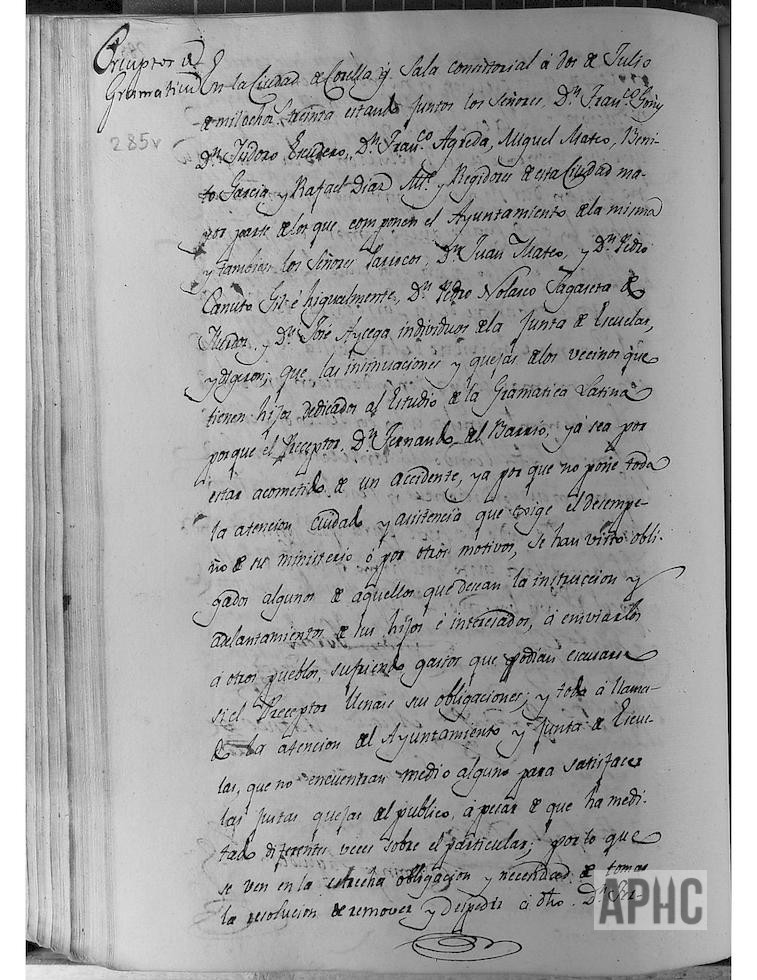 Preceptor de
Gramatica
285v
En la Ciudad de Corella y Sala consistorial á dos de Julio
de mil ochos. treinta estando juntos los Señores D.n Fran.co Goñy
D.n Isidoro Escudero, D.n Fran.co Agreda, Miguel Mateo, Beni-
to Garcia y Rafael Diaz Alc.e y Regidores de esta Ciudad ma-
yor parte de los que componen el Ayuntamiento de la misma
y tambien los Señores Parrocos, D.n Juan Mateo, y D.n Pedro
Canuto Gil é higualmente, D.n Pedro Nolasco Sagaseta de
Ilurdoz, y D.n José Aycega individuos de la Junta de Escuelas,
y digeron; que, las insinuaciones y quejas de los vecinos que
tienen hijos dedicados al Estudio de la Gramatica Latina
porque el Preceptor D.n Fernando del Barrio, yá sea por
estar acometido de un accidente, ya por que no pone toda
la atencion cuidado y asistencia que exige el desempe-
ño de su ministerio ó por otros motivos, se han visto obli-
gados algunos de aquellos que desean la instruccion y
adelantamientos de sus hijos é interesados, á enviarlos
á otros pueblos, sufriendo gastos que podian escusarse
si el Preceptor llenase sus obligaciones; y todo á llama-
do la atencion del Ayuntamiento y Junta de Escue-
las, que no encuentran medio alguno para satisfacer
las justas quejas del publico, á pesar de que ha medi-
tado diferentes veces sobre el particular; por lo que
se ven en la estrecha obligacion y necesidad de tomar
la resolucion de remover y despedir á dho. D.n Fer-
APHC